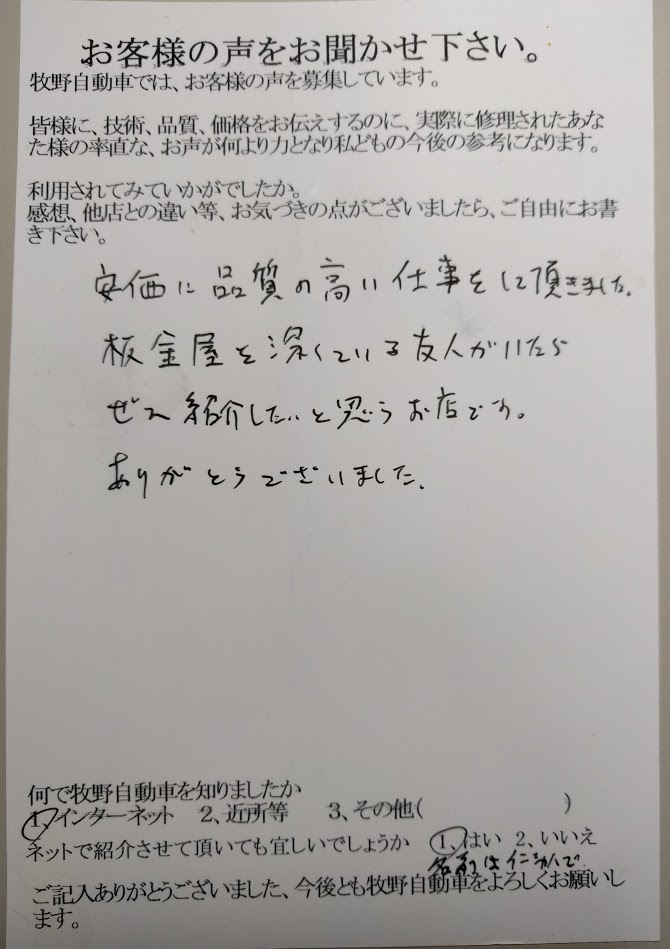 お客様の声をお聞かせ下さい。
牧野自動車では、お客様の声を募集しています。
皆様に、技術、品質、価格をお伝えするのに、実際に修理されたあな
た様の率直な、お声が何より力となり私どもの今後の参考になります。
利用されてみていかがでしたか。
感想、他店との違い等、お気づきの点がございましたら、ご自由にお書
き下さい。
安価に品質の高い仕事をして頂きました。
板金屋を深くている友人がいたら
ぜひ紹介したいと思うお店です。
ありがとうございました。
何で牧野自動車を知りましたか
1、インターネット 2、近所等 3、その他( )
ネットで紹介させて頂いても宜しいでしょうか 1、はい 2、いいえ
名前は
ご記入ありがとうございました、今後とも牧野自動車をよろしくお願いし
ます。